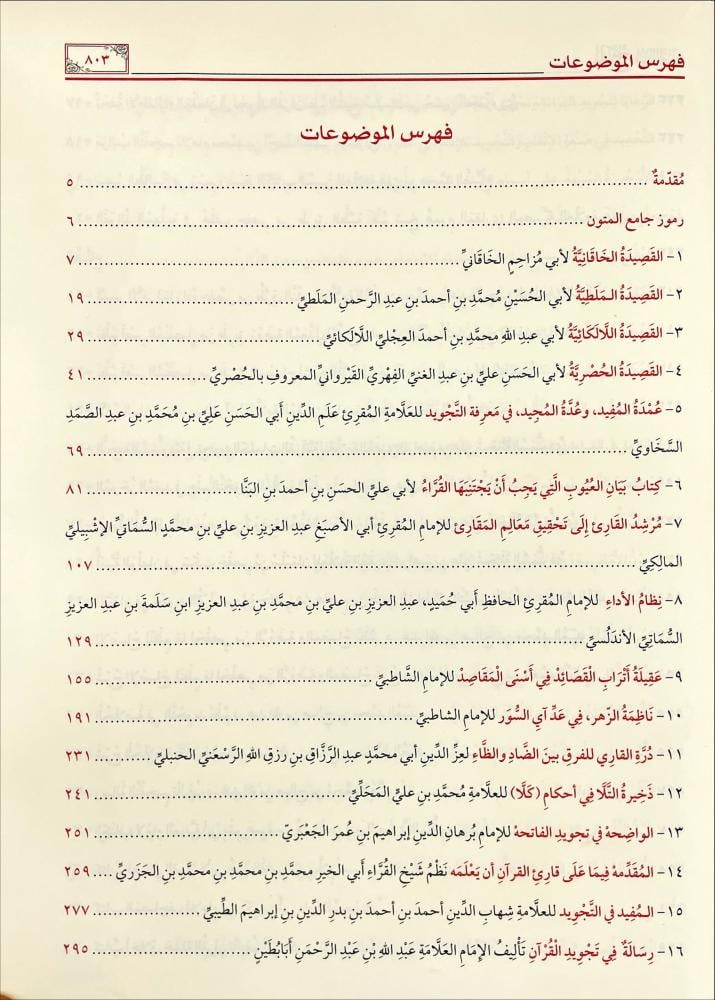 فهرس الموضوعات
٨٠٣
فهرس الموضوعات
مُقدّمةٌ ........ ٥
رموز جامع المتون ........ ٦
١- القَصِيدَةُ الخَاقَانِيَّةُ لأبي مُزاحِمٍ الخَاقَانيِّ ........ ٧
٢- القَصِيدَةُ الـمَلَطِيَّةُ لأبي الحُسَيْنِ مُحمَّدِ بنِ أحمدَ بنِ عبدِ الرَّحمنِ المَلَطيِّ ........ ١٩
٣- القَصِيدَةُ اللَّالَكَائِيَّةُ لأبي عبدِ اللهِ محمَّدِ بنِ أحمدَ العِجْليِّ اللَّالَكائيِّ ........ ٢٩
٤- القَصِيدَةُ الحُصْرِيَّةُ لأبي الحَسَنِ عليِّ بنِ عبدِ الغنيِّ الفِهْرِيِّ القَيْروانيِّ المعروفِ بالحُصْريِّ ........ ٤١
٥- عُمْدَةُ المُفِيد، وعُدَّةُ المُجِيد، في مَعرِفة التَّجْويد للعَلَّامةِ المُقرِئِ عَلَمِ الدِّينِ أبي الحَسَنِ عَلِيِّ بنِ مُحَمَّدِ بنِ عبدِ الصَّمَدِ
السَّخَاويِّ ........ ٦٩
٦- كِتابُ بَيَانِ العُيُوبِ الَّتِي يَجِبُ أَنْ يَجْتَنِبَهَا القُرَّاءُ لأبي عليٍّ الحسَنِ بنِ أحمدَ بنِ البَنَّا ........ ٨١
٧- مُرْشِدُ القَارِئِ إِلَى تَحْقِيقِ مَعَالِمِ المَقَارِئِ للإمامِ المُقرِئِ أبي الأصبَغِ عبدِ العزيزِ بنِ عليِّ بنِ محمَّدٍ السُّمَاتيِّ الإشْبِيليِّ
المالِكِيِّ ........ ١٠٧
٨- نِظامُ الأداءِ للإمامِ المُقرِئِ الحافظِ أبي حُمَيدٍ، عبدِ العزيزِ بنِ عليِّ بنِ محمَّدِ بنِ عبدِ العزيزِ ابنِ سَلَمةَ بنِ عبدِ العزيزِ
السُّمَاتِيِّ الأندَلُسِيِّ ........ ١٢٩
٩- عَقِيلَةُ أَتْرَابِ الْقَصَائِدْ فِي أَسْنَى الْمَقَاصِدْ للإمامِ الشَّاطبيِّ ........ ١٥٥
١٠- نَاظِمَةُ الزُّهر، فِي عَدِّ آيِ السُّوَر للإمامِ الشاطبيِّ ........ ١٩١
١١- دُرَّةُ القاري للفرقِ بينَ الضَّادِ والظَّاءِ لعِزِّ الدِّينِ أبي محمَّدٍ عبدِ الرَّزَّاقِ بنِ رزقِ اللهِ الرَّسْعَنيِّ الحنبليِّ ........ ٢٣١
١٢- ذَخِيرةُ التَّلَّا فِي أحكامِ (كَلَّا) للعلَّامةِ مُحمَّدِ بنِ عليٍّ المَحَلِّيِّ ........ ٢٤١
١٣- الواضِحهْ في تجويدِ الفاتحهْ للإمامِ بُرهانِ الدِّينِ إبراهيمَ بنِ عُمرَ الجَعْبَريِّ ........ ٢٥١
١٤- المُقَدِّمهْ فِيمَا عَلَى قارِئِ القرآنِ أن يَعْلَمَه نَظْمُ شَيْخِ القُرَّاءِ أبي الخيرِ محمَّدِ بنِ محمَّدِ بنِ محمَّدِ بنِ الجَزَريِّ ........ ٢٥٩
١٥- الـمُفِيد في التَّجْوِيد للعلَّامةِ شِهابِ الدِّينِ أحمدَ بنِ أحمدَ بنِ بدرِ الدِّينِ بنِ إبراهيمَ الطِّيبيِّ ........ ٢٧٧
١٦- رِسَالَةٌ فِي تَجْوِيدِ الْقُرْآنِ تَأْلِيفُ الإِمَامِ العَلَّامَةِ عَبْدِ اللهِ بْنِ عَبْدِ الرَّحْمَنِ أَبَابُطَيْنٍ ........ ٢٩٥